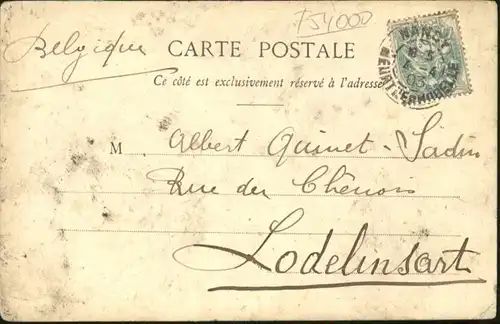 TJ4000
Belgique
CARTE POSTALE
Ce côté est exclusivement réservé à l'adresse
NANCY
MEURTHE-ET-MOSELLE
M Albert Quinet-Sadin
Rue du Chênois
Lodelinsart